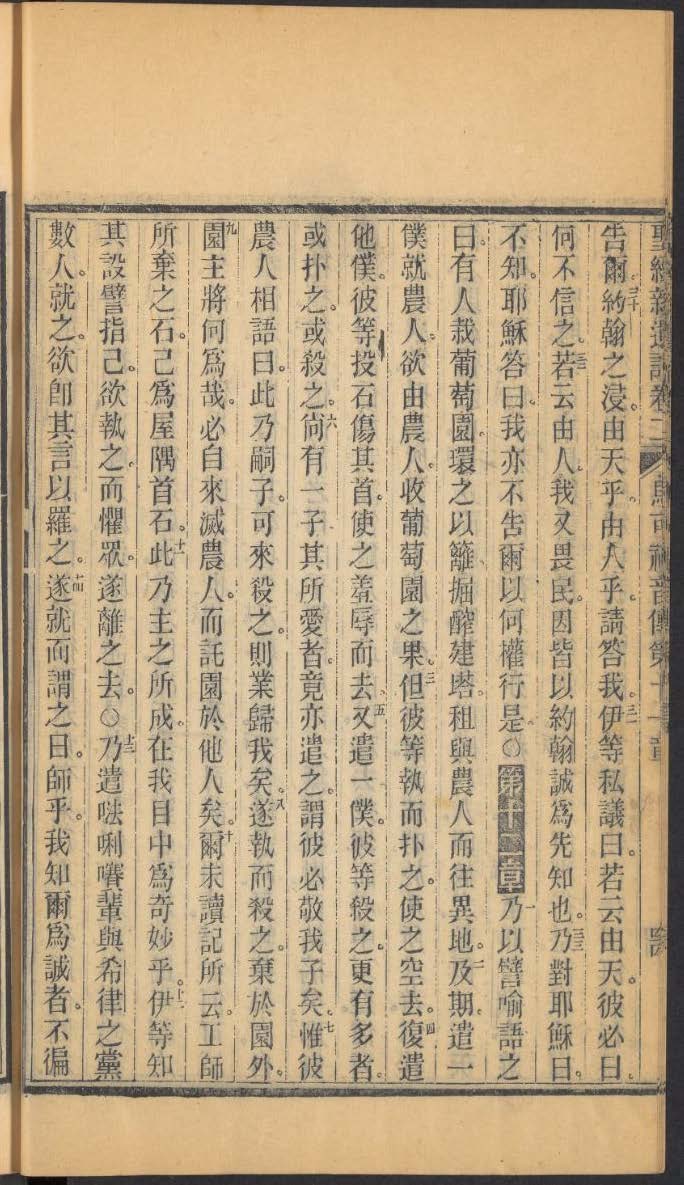 聖經新遺詔卷二 馬可福音傳第十一章
告爾。三十約翰之浸。由天乎。由人乎。請答我。三一伊等私議曰。若云由天。彼必曰。
何不信之。三二若云由人。我又畏民。因皆以約翰誠爲先知也。三三乃對耶穌曰。
不知。耶穌答曰。我亦不告爾以何權行是。○第十二章一乃以譬喻語之
曰。有人栽葡萄園。環之以籬。掘醡建塔。租與農人而往異地。二及期。遣一
僕就農人。欲由農人。收葡萄園之果。三但彼等執而扑之。使之空去。四復遣
他僕。彼等投石傷其首。使之羞辱而去。五又遣一僕。彼等殺之。更有多者。
或扑之。或殺之。六尙有一子其所愛者。竟亦遣之。謂彼必敬我子矣。七惟彼
農人相語曰。此乃嗣子。可來殺之。則業歸我矣。八遂執而殺之。棄於園外。
九園主將何爲哉。必自來滅農人。而託園於他人矣。十爾未讀記所云。工師
所棄之石。已爲屋隅首石。十一此乃主之所成。在我目中爲奇妙乎。十二伊等知
其設譬指己。欲執之。而懼眾。遂離之去。○十三乃遣𠵽唎嚽輩與希律之黨
數人。就之。欲卽其言以羅之。十四遂就而謂之曰。師乎。我知爾爲誠者。不徧